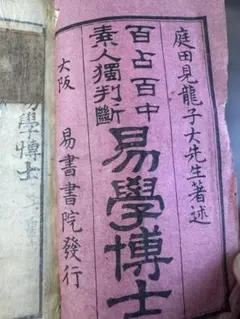 庭田見龍子大先生著述
百占百中
素人獨判斷
易學博士
大阪
易書書院發行
易學博士